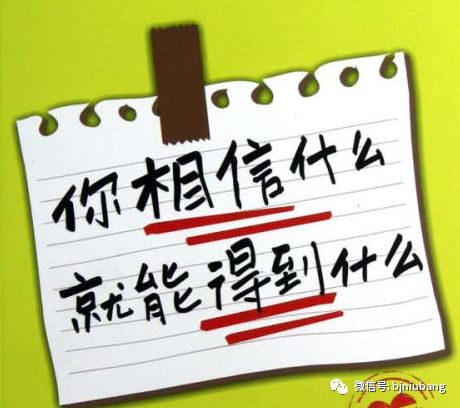 你相信什么
就能得到什么
微信号: bjniubang